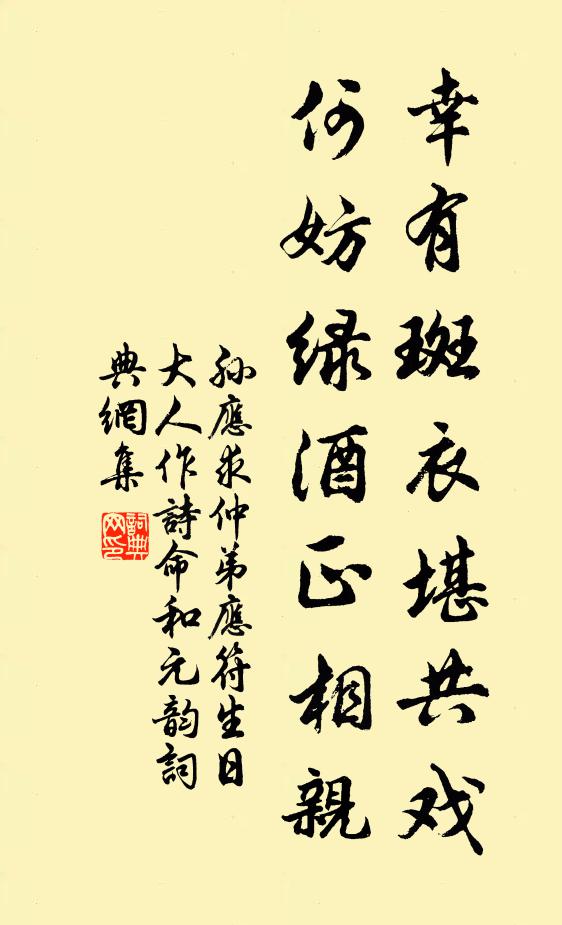 幸有斑衣堪共戏
何妨绿酒正相親
孙應求仲弟應符生日
大人作詩命和元韵詞
典網集
詞典
网印